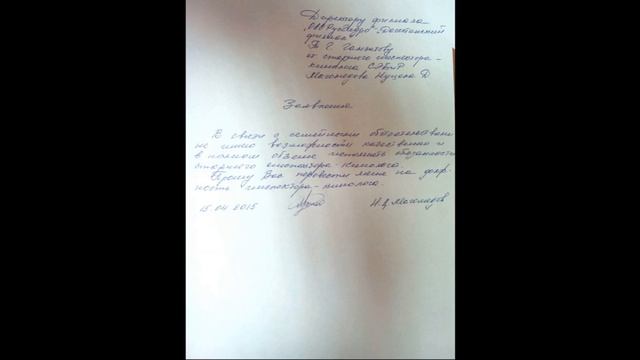 Директору филиала
"ОАО РусГидро"-Дагестанский
филиал"
Т. Г. Гамзатову
от старшего инспектора-
кинолога СЭБиР
Магомедова Нуцала Д
Заявление
В связи с семейными обстоятельствами
не имею возможности качественно и
в полном объеме исполнять обязанности
старшего инспектора-кинолога.
Прошу Вас перевести меня на долж-
ность инспектора-кинолога.
15.04.2015 Н.Д. Магомедов